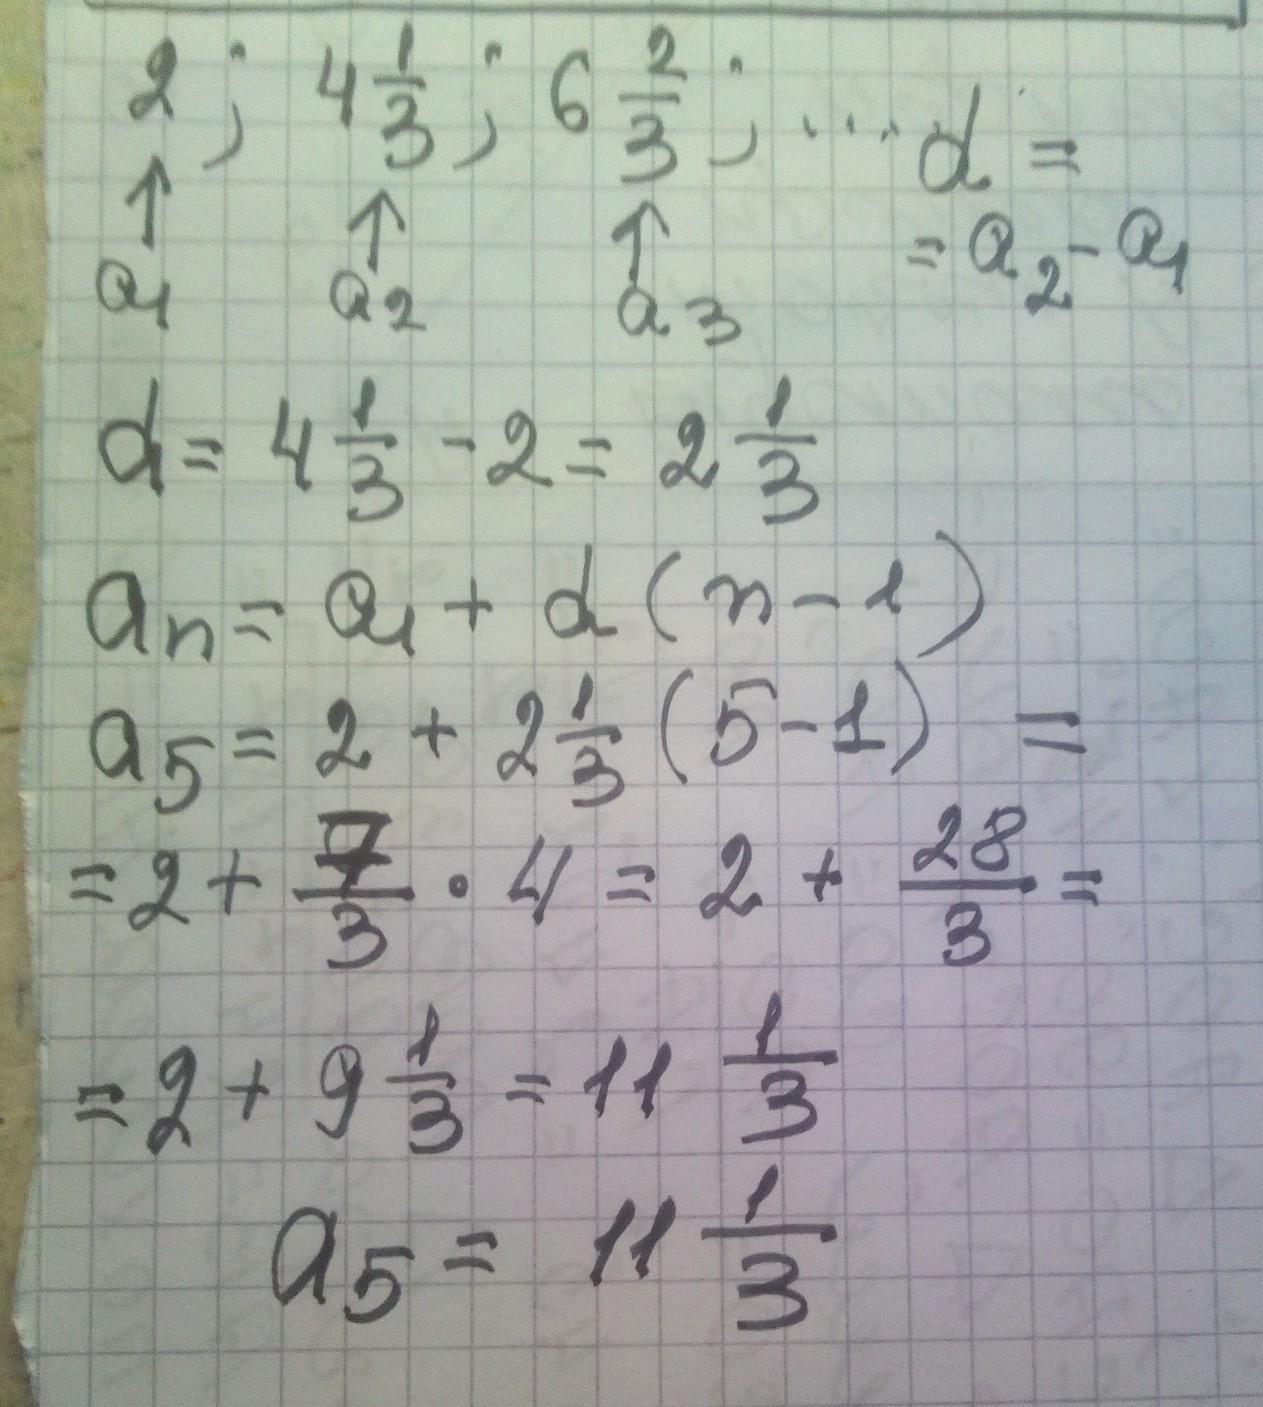 2 ; 4 1/3 ; 6 2/3 ; ... d =
↑ ↑ ↑
a₁ a₂ a₃ = a₂ - a₁
d = 4 1/3 - 2 = 2 1/3
aₙ = a₁ + d (n - 1)
a₅ = 2 + 2 1/3 (5 - 1) =
= 2 + 7/3 · 4 = 2 + 28/3 =
= 2 + 9 1/3 = 11 1/3
a₅ = 11 1/3